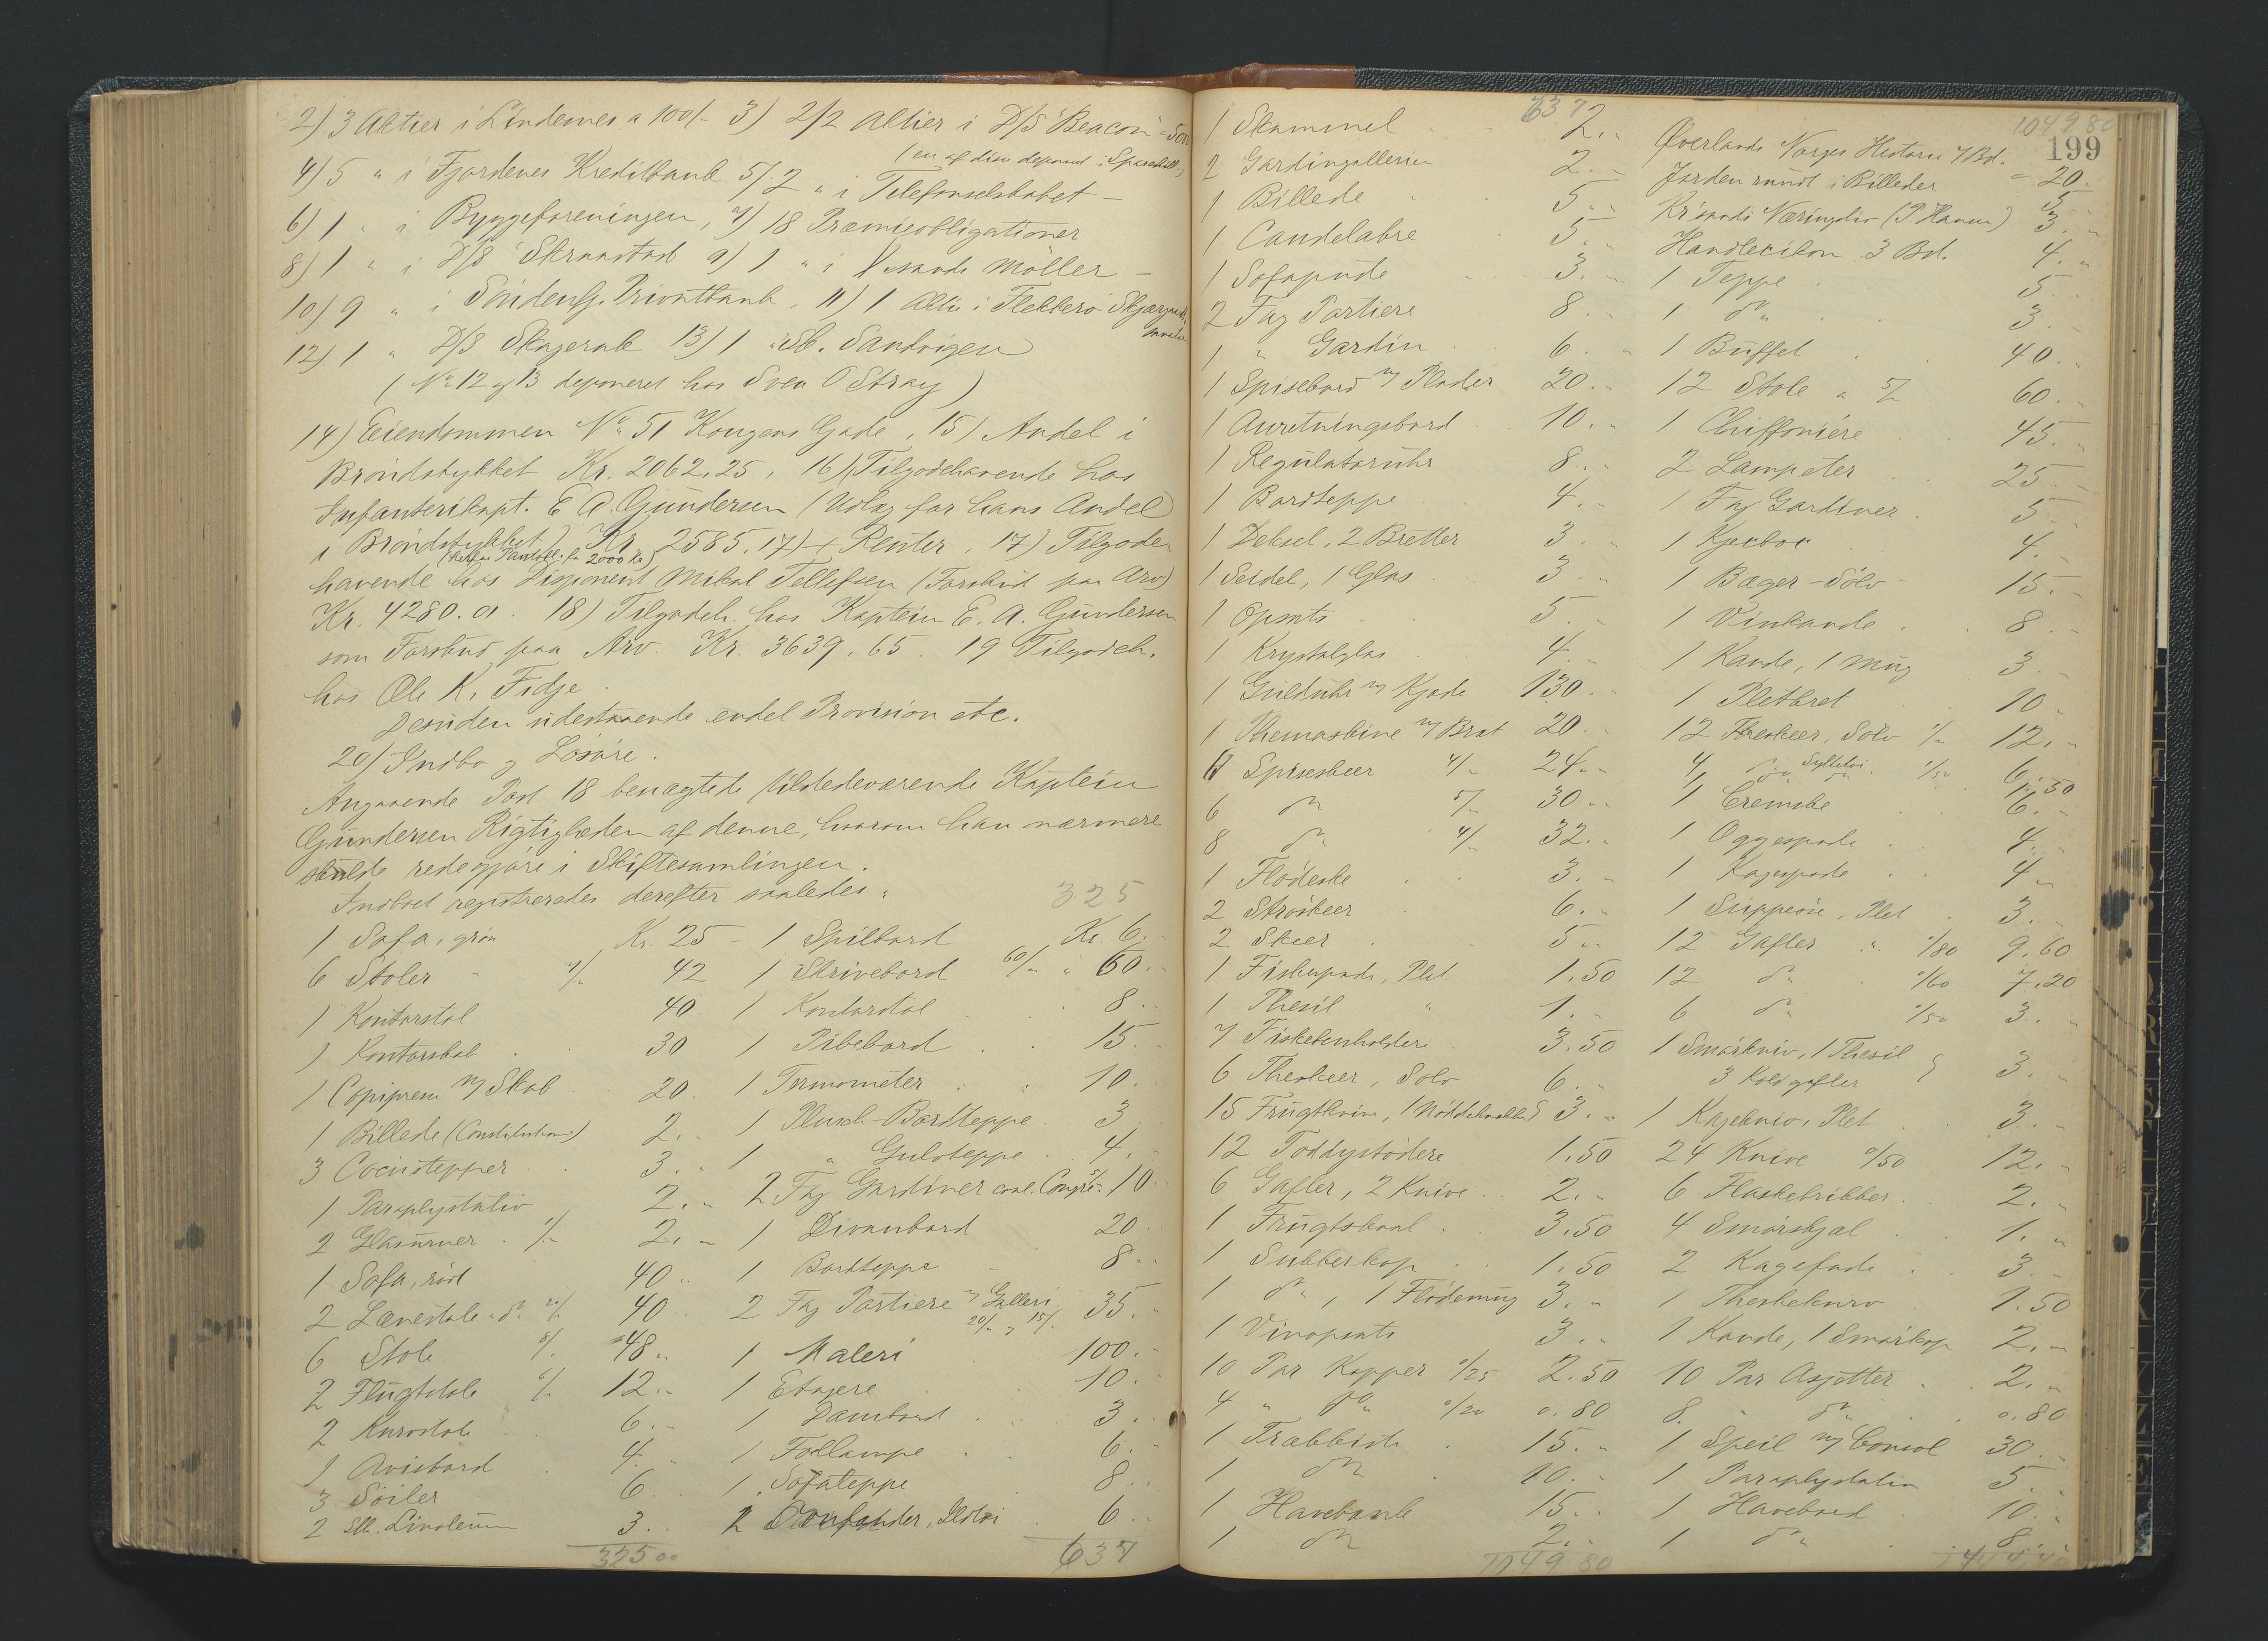 2) 3 Aktier i Lindesnes a 100/- 3) 2/2 Aktier i D/S "Beacon" = 500
(en af disse deponeret i Sparebk.)
4) 5 " i Fjordenes Kreditbank 5) 2 " i Telefonselskabet -
6) 1 " i Byggeforeningen, 7) 18 Præmieobligationer
8) 1 " i D/S Skraastad 9) 1 " i Møller -
10) 9 " i Søndenfj. Privatbank, 11) 1 Aktie i Flekkerø Skjærgaards
12) 1 " D/S Skagerak 13) 1 " Sb. Sandvigen
(No 12 og 13 deponeret hos Sven O Stray)
14) Eiendommen No 51 Kongens Gade, 15) Andel i
Brøndstykket Kr. 2062,25, 16) Tilgodehavende hos
Infanterikapt. E A. Gundersen (Udlæg for hans Andel
i Brøndstykket) Kr 2585,17 + Renter, 17) Tilgode-
(herfor Pantobl. for 2000 Kr)
havende hos Disponent Mikal Tellefsen (Forskud paa Arv)
Kr. 4280.01. 18) Tilgodeh. hos Kaptein E. A. Gundersen
som Forskud paa Arv. Kr. 3639.65. 19 Tilgodeh.
hos Ole K. Fidje.
Desuden udestaaende endel Provision etc.
20) Indbo og Løsøre.
Angaaende Post 18 benægtede tilstedeværende Kaptein
Gundersen Rigtigheden af denne, hvorom han nærmere
skulde redegjøre i Skiftesamlingen.
Indboet registreredes derefter saaledes:
325
1 Sofa, grøn Kr. 25 -
6 Stoler 7/- 42
1 Kontorstol 40
1 Kontorskab 30
1 Copipresse m/ Skab 20.
1 Billede (Constitution) 2. "
3 Cocustepper 3. "
1 Paraplystativ 2. "
2 Glasurner 1/- 2. "
1 Sofa, rød 40 "
2 Lænestole " do 20/- 40
6 Stole 8/- 48 "
2 Flugtstole 6/- 12. "
2 Kurvstole 6. "
1 Avisbord 4. "
3 Søiler 6
2 Stk. Linoleum 3. "
325 00
1 Spillbord Kr 6. "
1 Skrivebord 60/- " 60. "
1 Kontorstol 8 "
1 Pibebord 15. "
1 Termometer 10.
1 Plusch-Bordteppe 3
1 " Gulvteppe 4. "
2 Fag Gardiner 5/- 10 "
1 Divanbord 20
1 Bordteppe 8 "
2 Fag Portiere m/ Galleri 20/- og 15/- 35. "
1 Maleri 100. "
1 Etagere 10. "
1 Dambord 3. "
1 Fodlampe 6. "
1 Sofateppe 8
6 "
637
637
1 Skammel 2. "
2 Gardingallerier 2. "
1 Billede 5. "
1 Candelabre 5. "
1 Sofapude 3. "
2 Fag Portiere 8. "
1 " Gardin 6. "
1 Spisebord m/ Plader 20. "
1 Anretningsbord 10. "
1 Regulatoruhr 8. "
1 Bordteppe 4. "
1 Deksel, 2 Bretter 3. "
1 Seidel, 1 Glas 3. "
1 Opsats 5. "
1 Krystalglas 4. "
1 Gulduhr m/ Kjæde 130. "
1 Themaskine m/ Bret 20. "
6 Spiseskeer 4/- 24. "
6 do 5/- 30. "
8 do 4/- 32. "
1 Flødeske 3. "
2 Strøskeer 6. "
2 Skeer 5. "
1 Fiskespade, Plet 1.50
1 Thesil " 1. "
7 Fiskebenholdere 3.50
6 Theskeer, Sølv 6. "
15 Frugtknive, 1 Nøddeknækker 3. "
12 Toddystødere 1.50
6 Gafler, 2 Knive 2. "
1 Frugtskaal 3.50
1 Sukkerkop 1.50
1 do, 1 Flødemug 3. "
1 Vinopsats 3. "
10 Par Kopper 0/25 2.50
4 " do 0/20 0.80
1 Trækkiste 15. "
1 do 10. "
1 Havebænk 15. "
1 do 2. "
1049 80
1049 80
199
Øverlands Norges Historie 7 Bd. = 20. "
Jorden rundt i Billeder 5. "
Kr'sands Næringsliv (P Hanssen) 3. "
Handlexikon 3 Bd. 4. "
1 Teppe 5. "
1 do 3. "
1 Buffet 40. "
12 Stole a 5/- 60. "
1 Chiffoniere 45. "
2 Lampeter 25 -
1 Fag Gardiner 5 -
4. "
1 Bæger - Sølv 15. "
1 Vinkande 8. "
1 Kande, 1 Mug 3. "
1 Pletbret 10 -
12 Theskeer, Sølv 1/- 12. "
4 do Syltetøi do 1/50 6. "
1 Cremske 6. "
1 Æggespade 4. "
1 Kagespade 4 "
1 Suppeøse, Plet 3. "
12 Gafler " 0/80 9.60
12 do 0/60 7.20
6 do 0/50 3. "
1 Smørkniv, 1 Thesil
3 Koldgafler 3. "
1 Kagekniv, Plet 3. "
24 Knive 0/50 12. "
6 Flaskebrikker 2. "
4 Smørskjæl 1. "
2 Kagefade 3. "
1 Theskekurv 1.50
1 Kande, 1 Smørkop 2. "
10 Par Asjetter 2. "
8. " do 0.80
1 Speil m/ Consol 30. "
1 Paraplystativ 5. "
1 Havebord 10. "
1 do 8. "